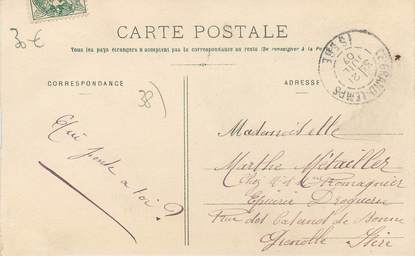 30€
CARTE POSTALE
Tous les pays étrangers n'acceptent pas la correspondance au recto (Se renseigner à la Poste)
CORRESPONDANCE
ADRESSE
38
LE GRAND-LEMPS
ISERE
Qui pense
a toi ?
Mademoiselle
Marthe Métailler
Chez Mr et Mme Romagnier
Epicerie Droguerie
Rue des Casernes de Bonne
Grenoble Isère